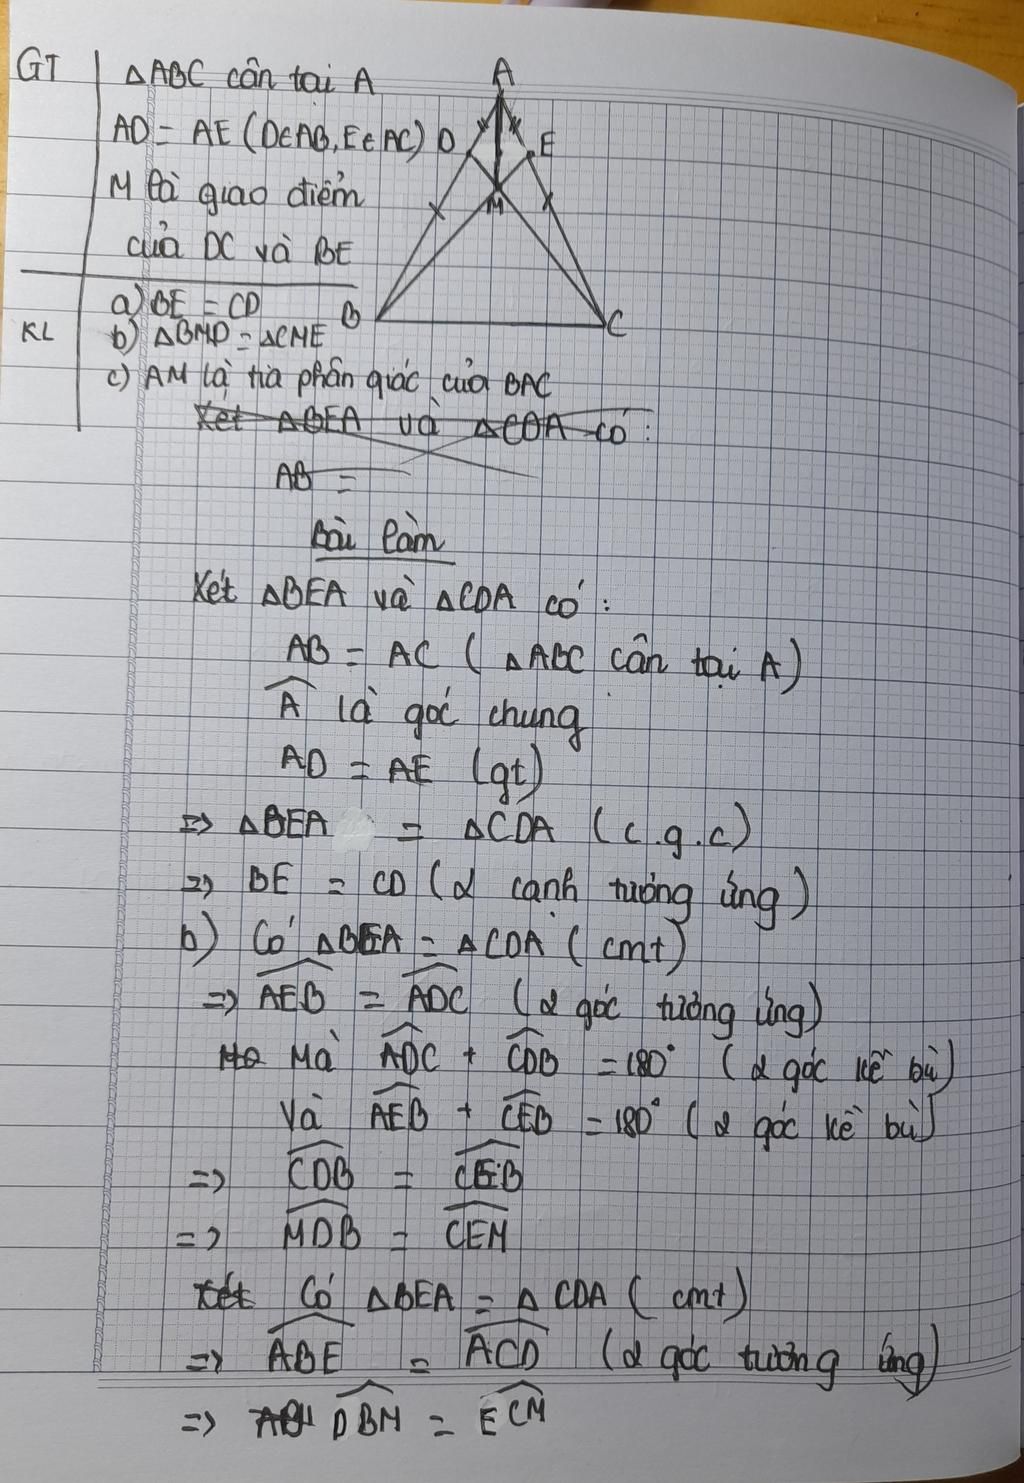 GT
ΔABC cân tại A
AD = AE (D∈AB, E∈AC)
M là giao điểm
của DC và BE
KL
a) BE = CD
b) ΔBMD = ΔCME
c) AM là tia phân giác của BAC
A
D
E
M
B
C
Xét ΔBEA và ΔCDA có:
AB =
Bài làm
Xét ΔBEA và ΔCDA có:
AB = AC (ΔABC cân tại A)
Â là góc chung
AD = AE (gt)
=> ΔBEA = ΔCDA (c.g.c)
=> BE = CD (2 cạnh tương ứng)
b) Có ΔBEA = ΔCDA (cmt)
=> AEB = ADC (2 góc tương ứng)
Mà ADC + CDB = 180° (2 góc kề bù)
Và AEB + CEB = 180° (2 góc kề bù)
=> CDB = CEB
=> MDB = CEM
Xét Có ΔBEA = ΔCDA (cmt)
=> ABE = ACD (2 góc tương ứng)
=> DBM = ECM